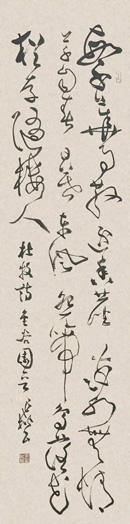 繁華事散逐香塵流水無情
草自春日暮東風怨啼鳥落花
猶似墜樓人 杜牧詩金谷園